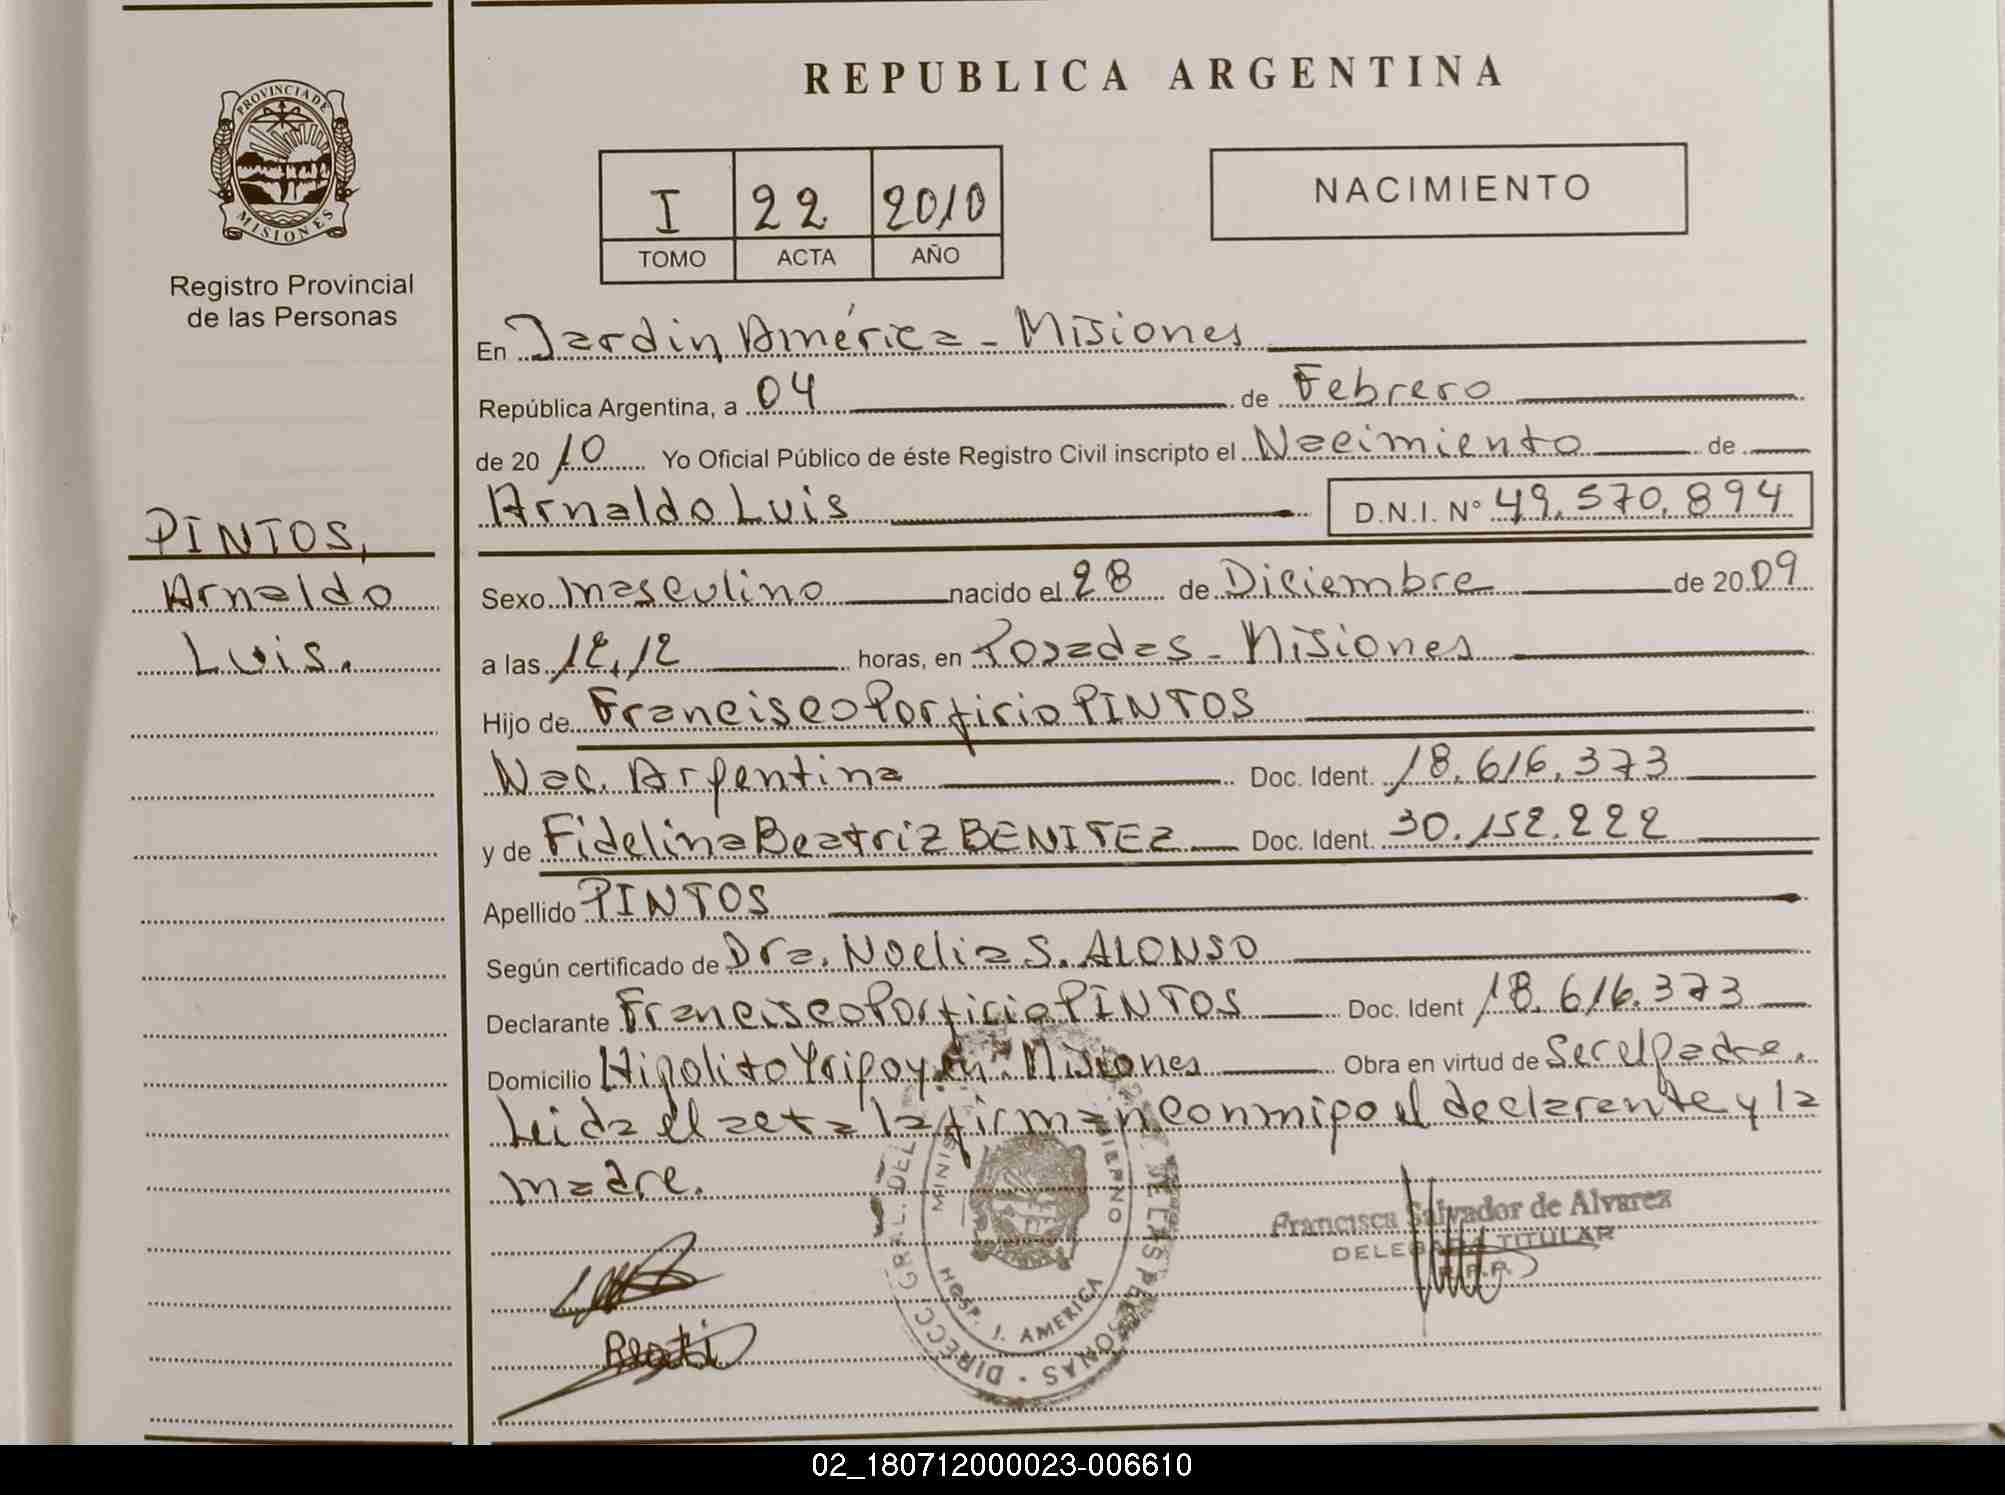 REPUBLICA ARGENTINA
PROVINCIA DE
MISIONES
Registro Provincial
de las Personas
I 22 2010
TOMO ACTA AÑO
NACIMIENTO
PINTOS,
Arnaldo
Luis.
En Jardin América - Misiones
República Argentina, a 04 de Febrero
de 20 10 Yo Oficial Público de éste Registro Civil inscripto el Nacimiento de
Arnaldo Luis D.N.I. N° 49.570.894
Sexo masculino nacido el 28 de Diciembre de 2009
a las 12,12 horas, en Posadas - Misiones
Hijo de Francisco Porfirio PINTOS
Nac. Argentina Doc. Ident. 18.616.373
y de Fidelina Beatriz BENITEZ Doc. Ident. 30.152.222
Apellido PINTOS
Según certificado de Dra. Noelia S. ALONSO
Declarante Francisco Porficio PINTOS Doc. Ident 18.616.373
Domicilio Hipolito Yrigoyen - Misiones Obra en virtud de Ser el padre.
Leida el acta la firman conmigo el declarante y la
madre.
DIRECC GRAL. DEL DE LAS PERSONAS
HOSP. J. AMERICA
Francisca Salvador de Alvarez
DELEGADA TITULAR
R.P.P.
02_180712000023-006610